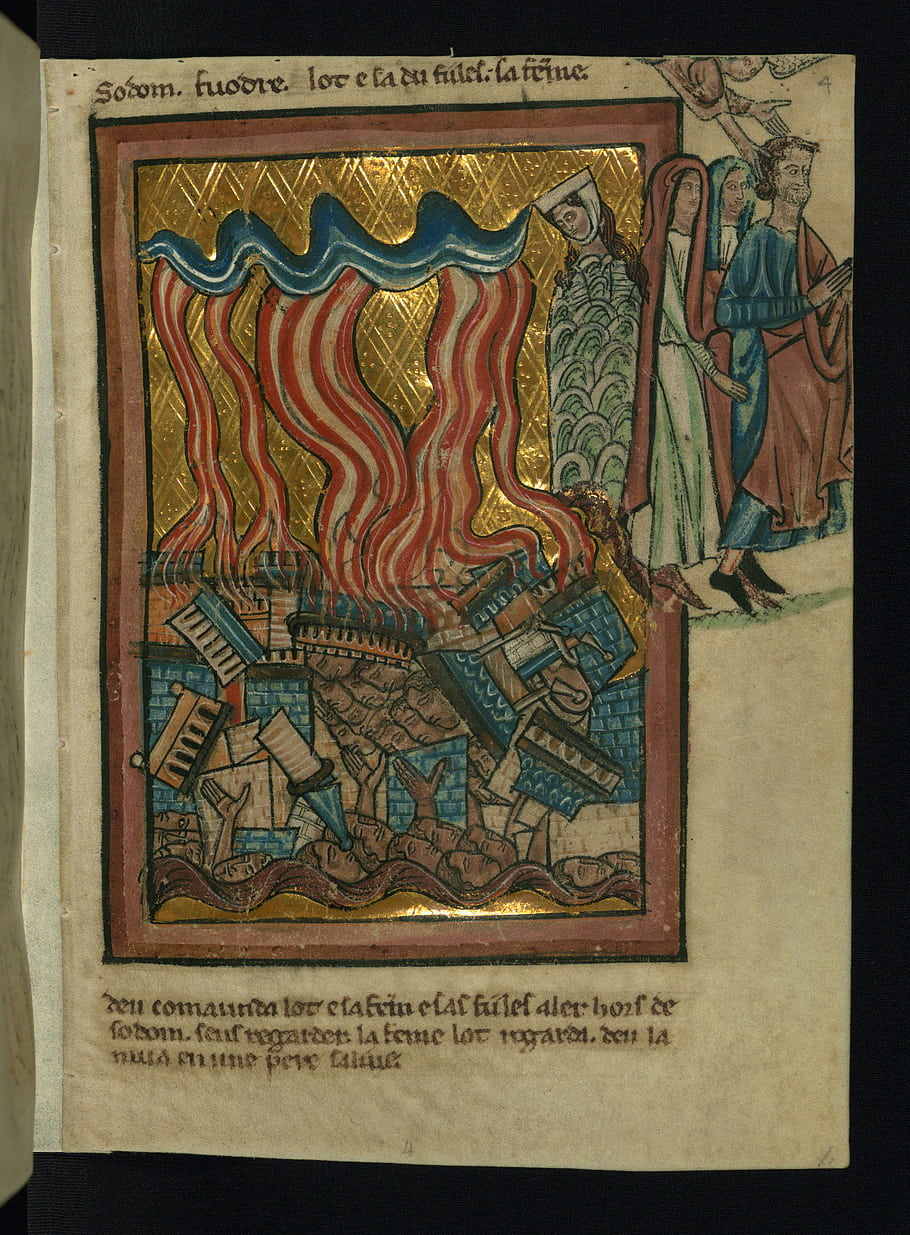 Sodom. fuodre. lot e sa du fules. sa feme.
4
deu comaunda lot e sa fem e sas fules aler hors de
sodom. sens regarder. la feme lot regarda. deu la
mua en une pere
4